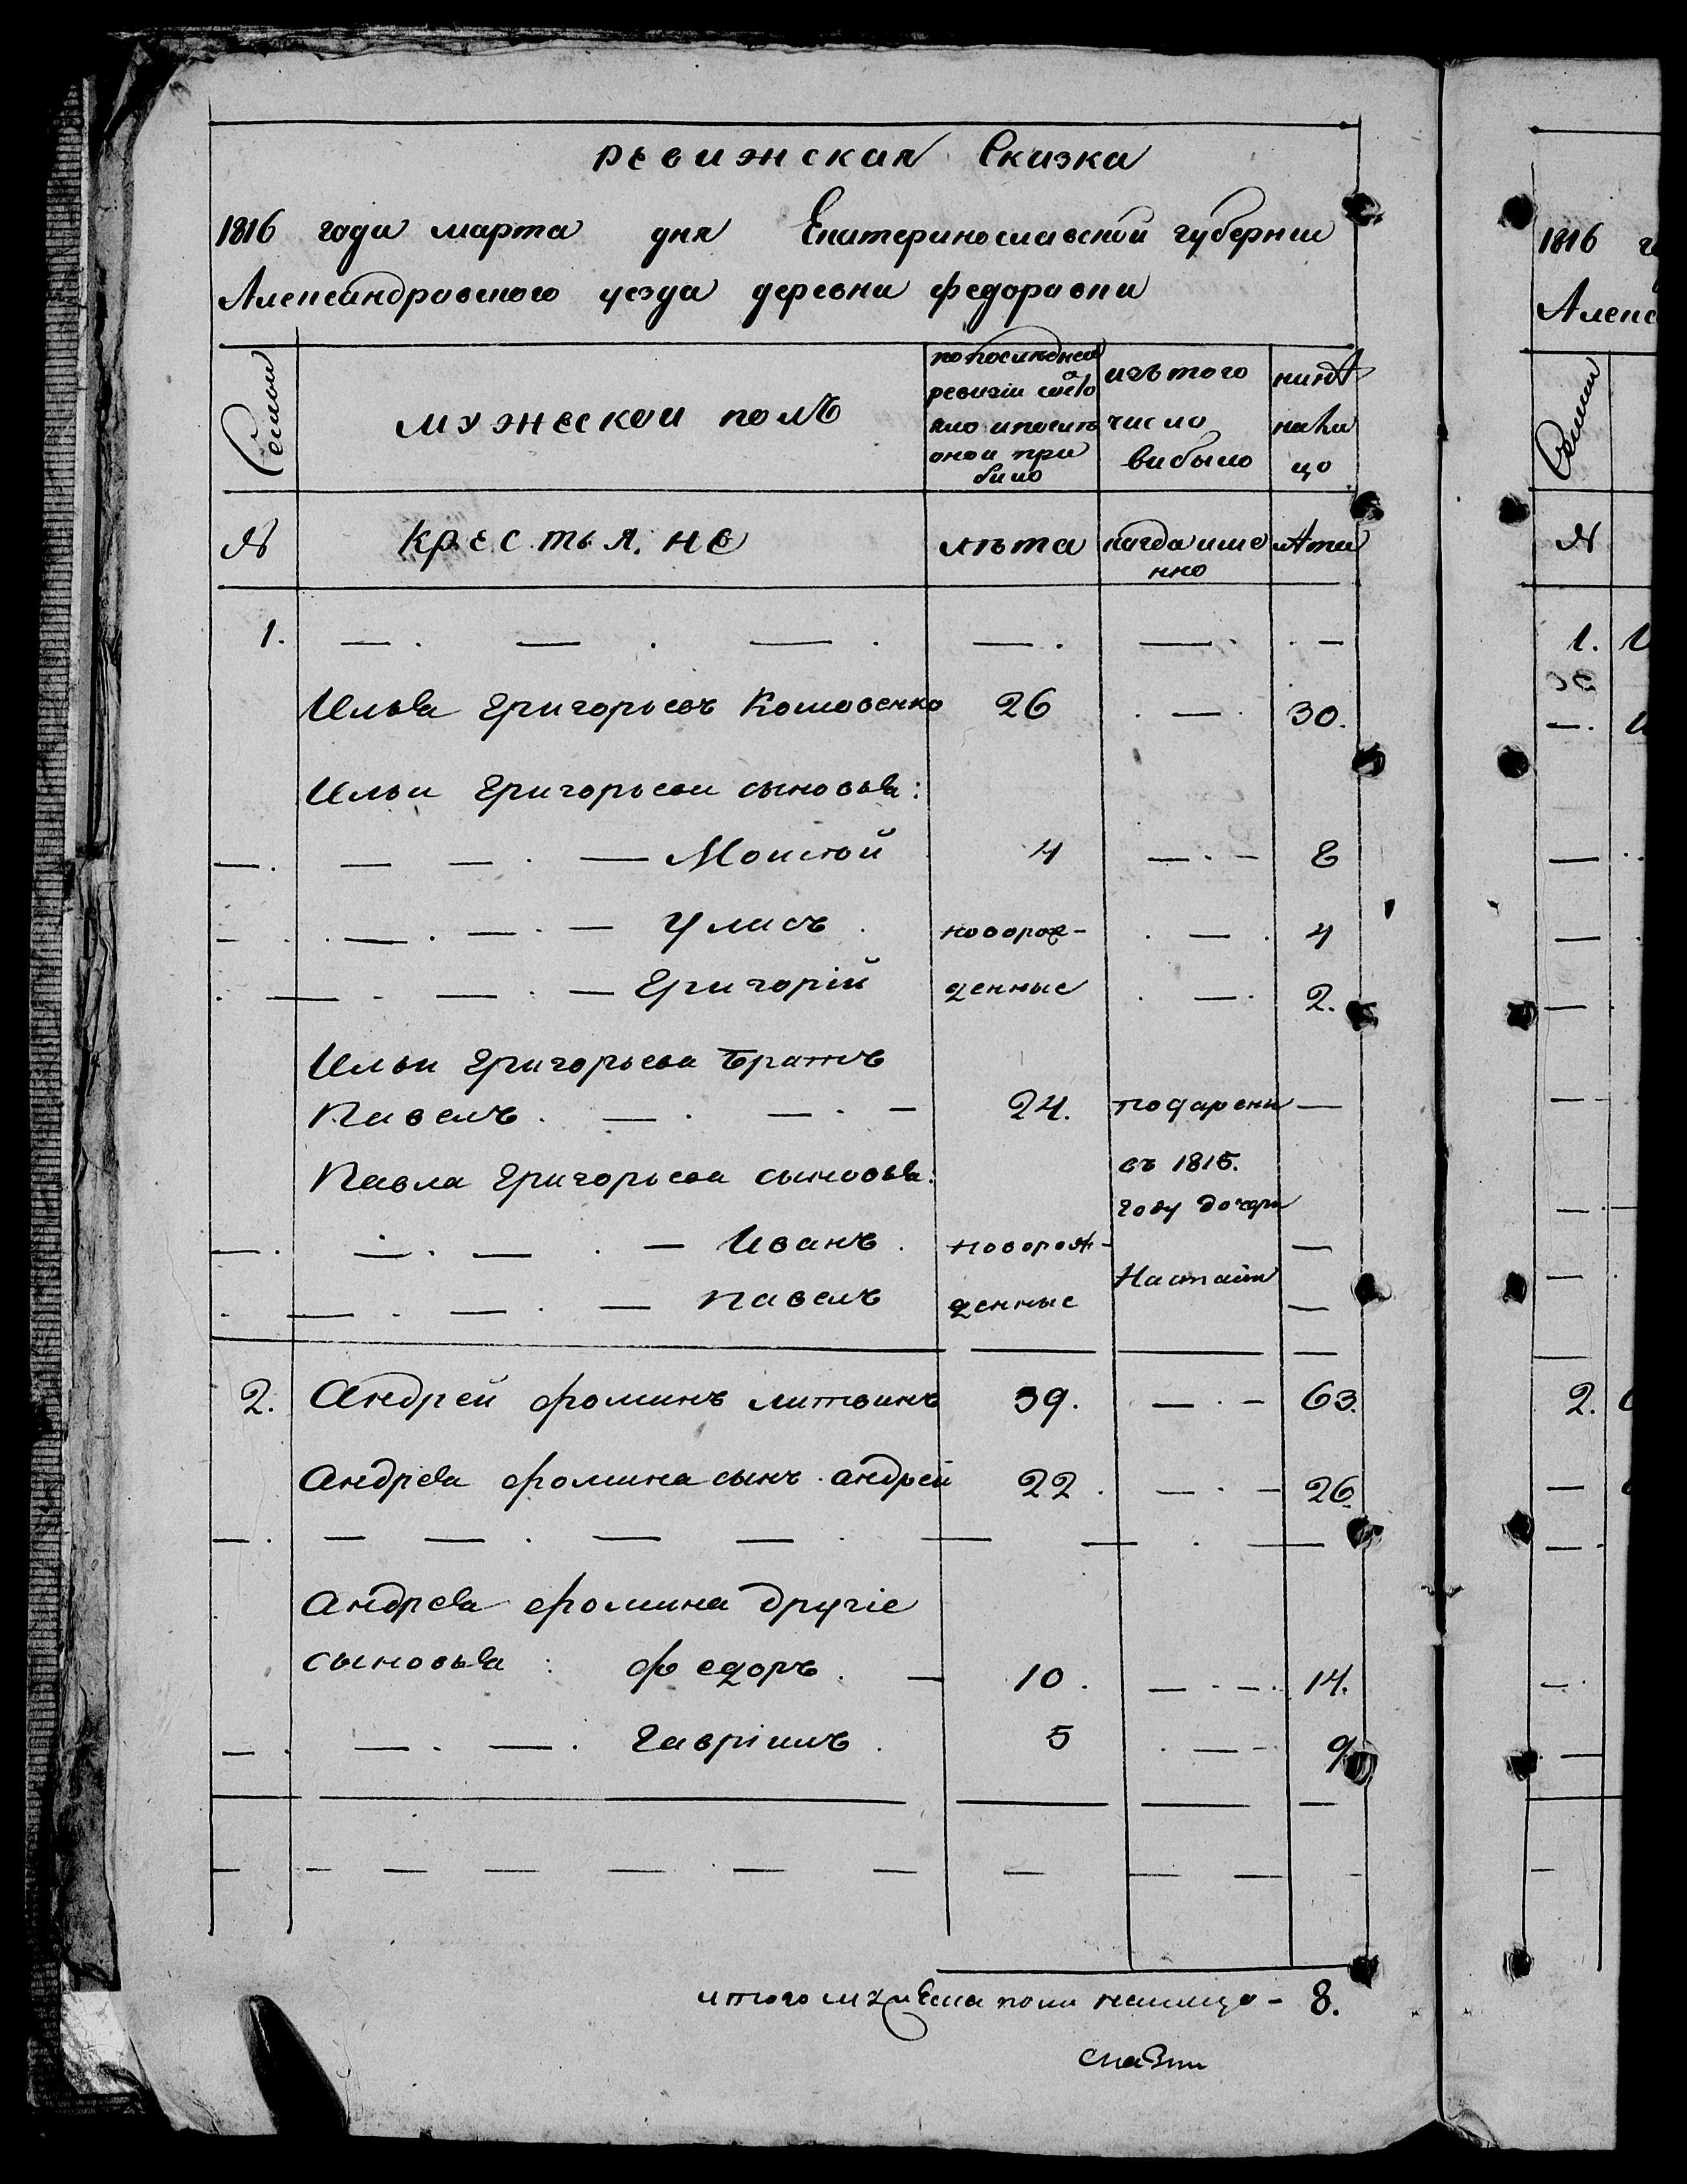 ревизская Сказка
1816 года марта дня Екатеринославской губернии
Александровского уезда деревни федоровки
Семьи
мужескои полъ
по последней
ревизiи состо
яло и после
оной при
было
изъ того
число
выбыло
нынѣ
на ли
цо
№
крестьяне
лѣта
когда име
нно
лѣта
1.
Илья Григорьевъ Кошовенко 26 30.
Ильи Григорьева сыновья:
Моисей 4 8
Улисъ новорож- 4
Григорiй денные 2.
Ильи Григорьева братъ
Павелъ. 24. подарены
Павла Григорьева сыновья: въ 1815.
году дочери
Иванъ новорож-
Павелъ денные
2. Андрей фоминъ литвинъ 59. 63.
Андрея фомина сынъ андрей 22. 26.
Андрея фомина другiе
сыновья: федоръ. 10. 14.
Гаврiилъ. 5 9
итого мужеска пола налицо - 8.
1816
Алекс
Семьи
№
1.
2.